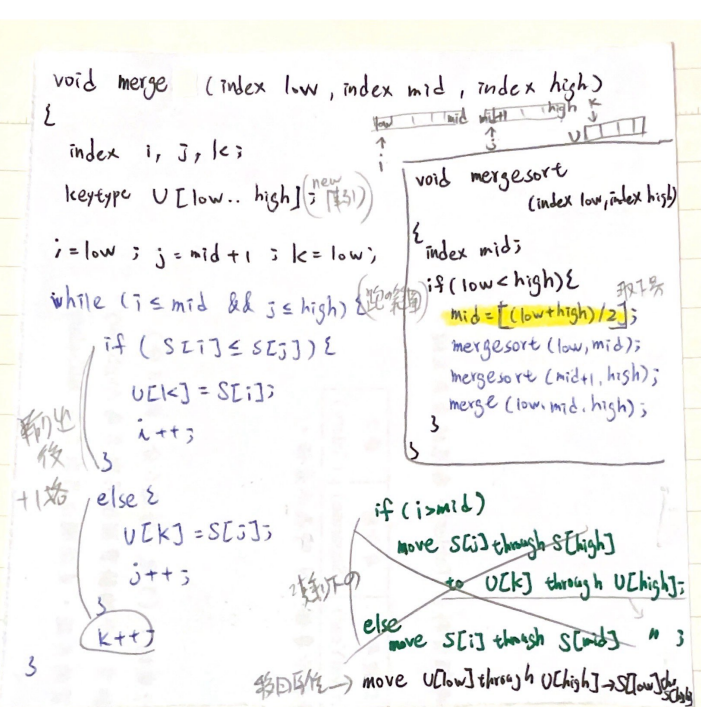 void merge (index low, index mid, index high)
{
low mid mid+1 high k
i j U
index i, j, k;
keytype U[low.. high]; (new 陣列)
i=low ; j=mid+1 ; k=low;
while (i≤mid && j≤high) {
if ( S[i]≤S[j]) {
U[k]=S[i];
i++;
}
後
+1格
else {
U[k]=S[j];
j++;
}
k++;
}
void mergesort
(index low, index high)
{
index mid;
if(low<high){
mid=⌊(low+high)/2⌋;
mergesort (low,mid);
mergesort (mid+1,high);
merge (low,mid,high);
}
}
if (i>mid)
move S[j] through S[high]
to U[k] through U[high];
else
move S[i] through S[mid] " ;
move U[low] through U[high]→S[low]
S[high]